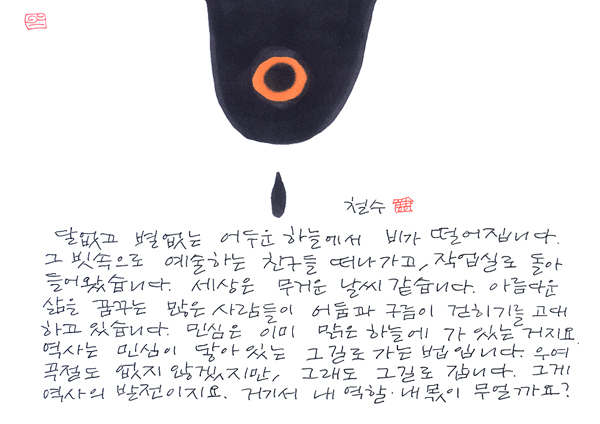 철수
달없고 별없는 어두운 하늘에서 비가 떨어집니다.
그 빗속으로 예술하는 친구들 떠나가고, 작업실로 돌아
들어왔습니다. 세상은 무거운 날씨 같습니다. 아름다운
삶을 꿈꾸는 많은 사람들이 어둠과 구름이 걷히기를 고대
하고 있습니다. 민심은 이미 맑은 하늘에 가 있는 거지요.
역사는 민심이 닿아 있는 그길로 가는 법입니다. 우여
곡절도 없지 않겠지만, 그래도 그길로 갑니다. 그게
역사의 발전이지요. 거기서 내 역할·내 몫이 무얼까요?